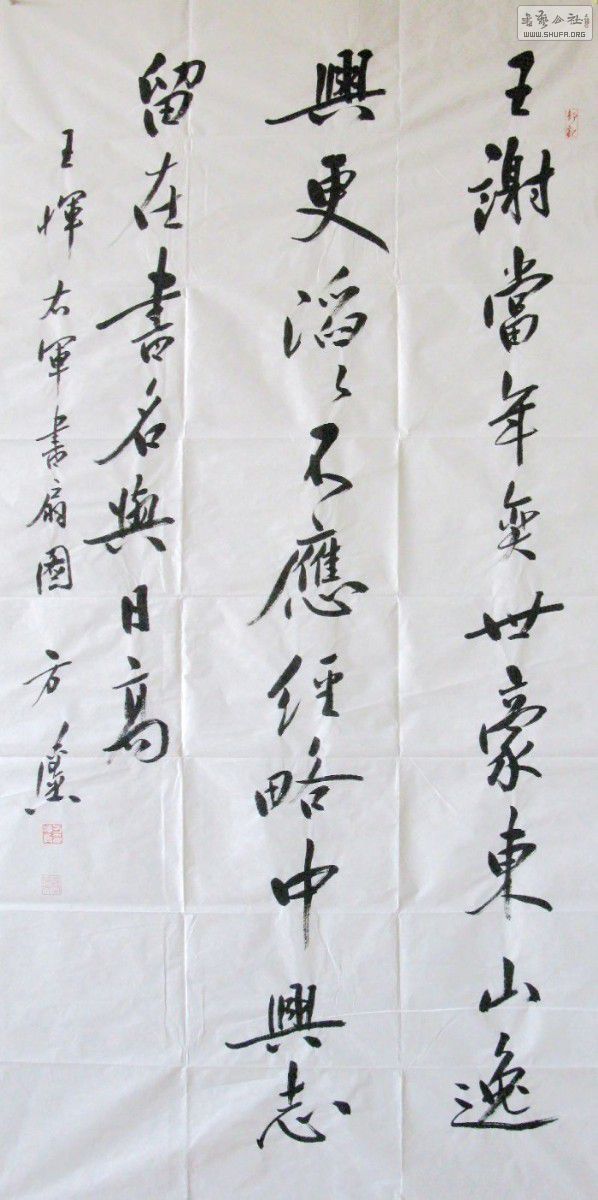 王謝當年奕世豪東山逸
興更滔〻不應經略中興志
留在書名與日高
王惲右軍書扇圖 方
書藝公社
WWW.SHUFA.ORG